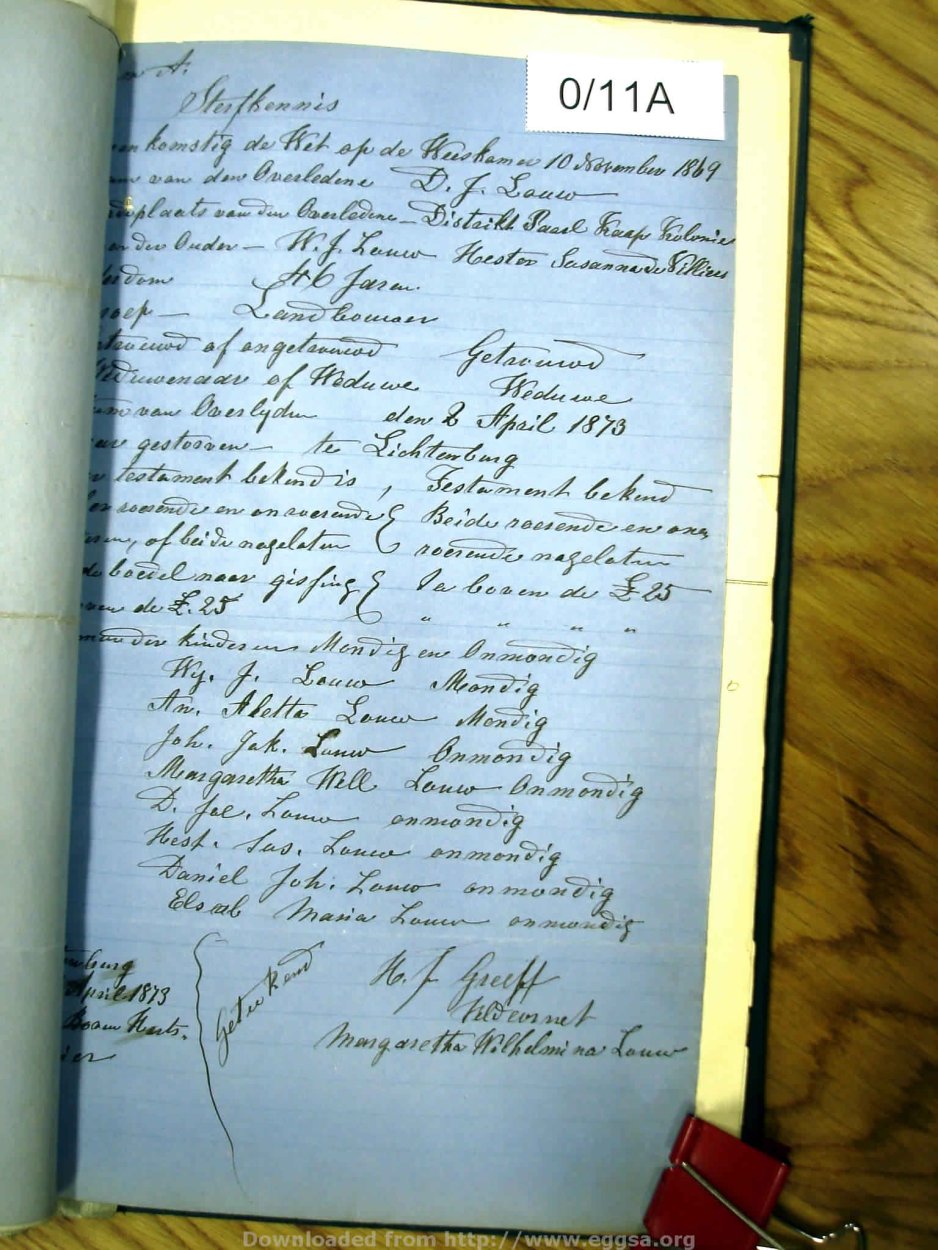 A.
0/11A
Sterfkennis
komstig de Wet op de Weeskamer 10 November 1869
van den Overledene D. J. Louw
plaats van den Overledene – Distrikt Paarl Kaap Kolonie
der Ouder – W. J. Louw Hester Susanna de Villiers
dom 46 Jaren
oep – Landbouwer
trouwd of ongetrouwd Getrouwd
Weduwenaar of Weduwe Weduwe
van Overlyden den 2 April 1873
gestorven – te Lichtenburg
testament bekend is, Testament bekend
roerende en onroerende { Beide roerende en on
of beide nagelaten { roerende nagelaten
boedel naar gissing { Ja boven de £25
de £.25 " " " "
der kinderen Mondig en Onmondig
Wy. J. Louw Mondig
An. Aletta Louw Mondig
Joh. Jak. Louw Onmondig
Margaretha Well Louw Onmondig
D. Jac. Louw onmondig
Hest. Sus. Louw onmondig
Daniel Joh. Louw onmondig
Elsab Maria Louw onmondig
burg
April 1873
Boven Harts.
ier
Getekend
H. J. Greeff
Veldcornet
Margaretha Wilhelmina Louw
Downloaded from http://www.eggsa.org